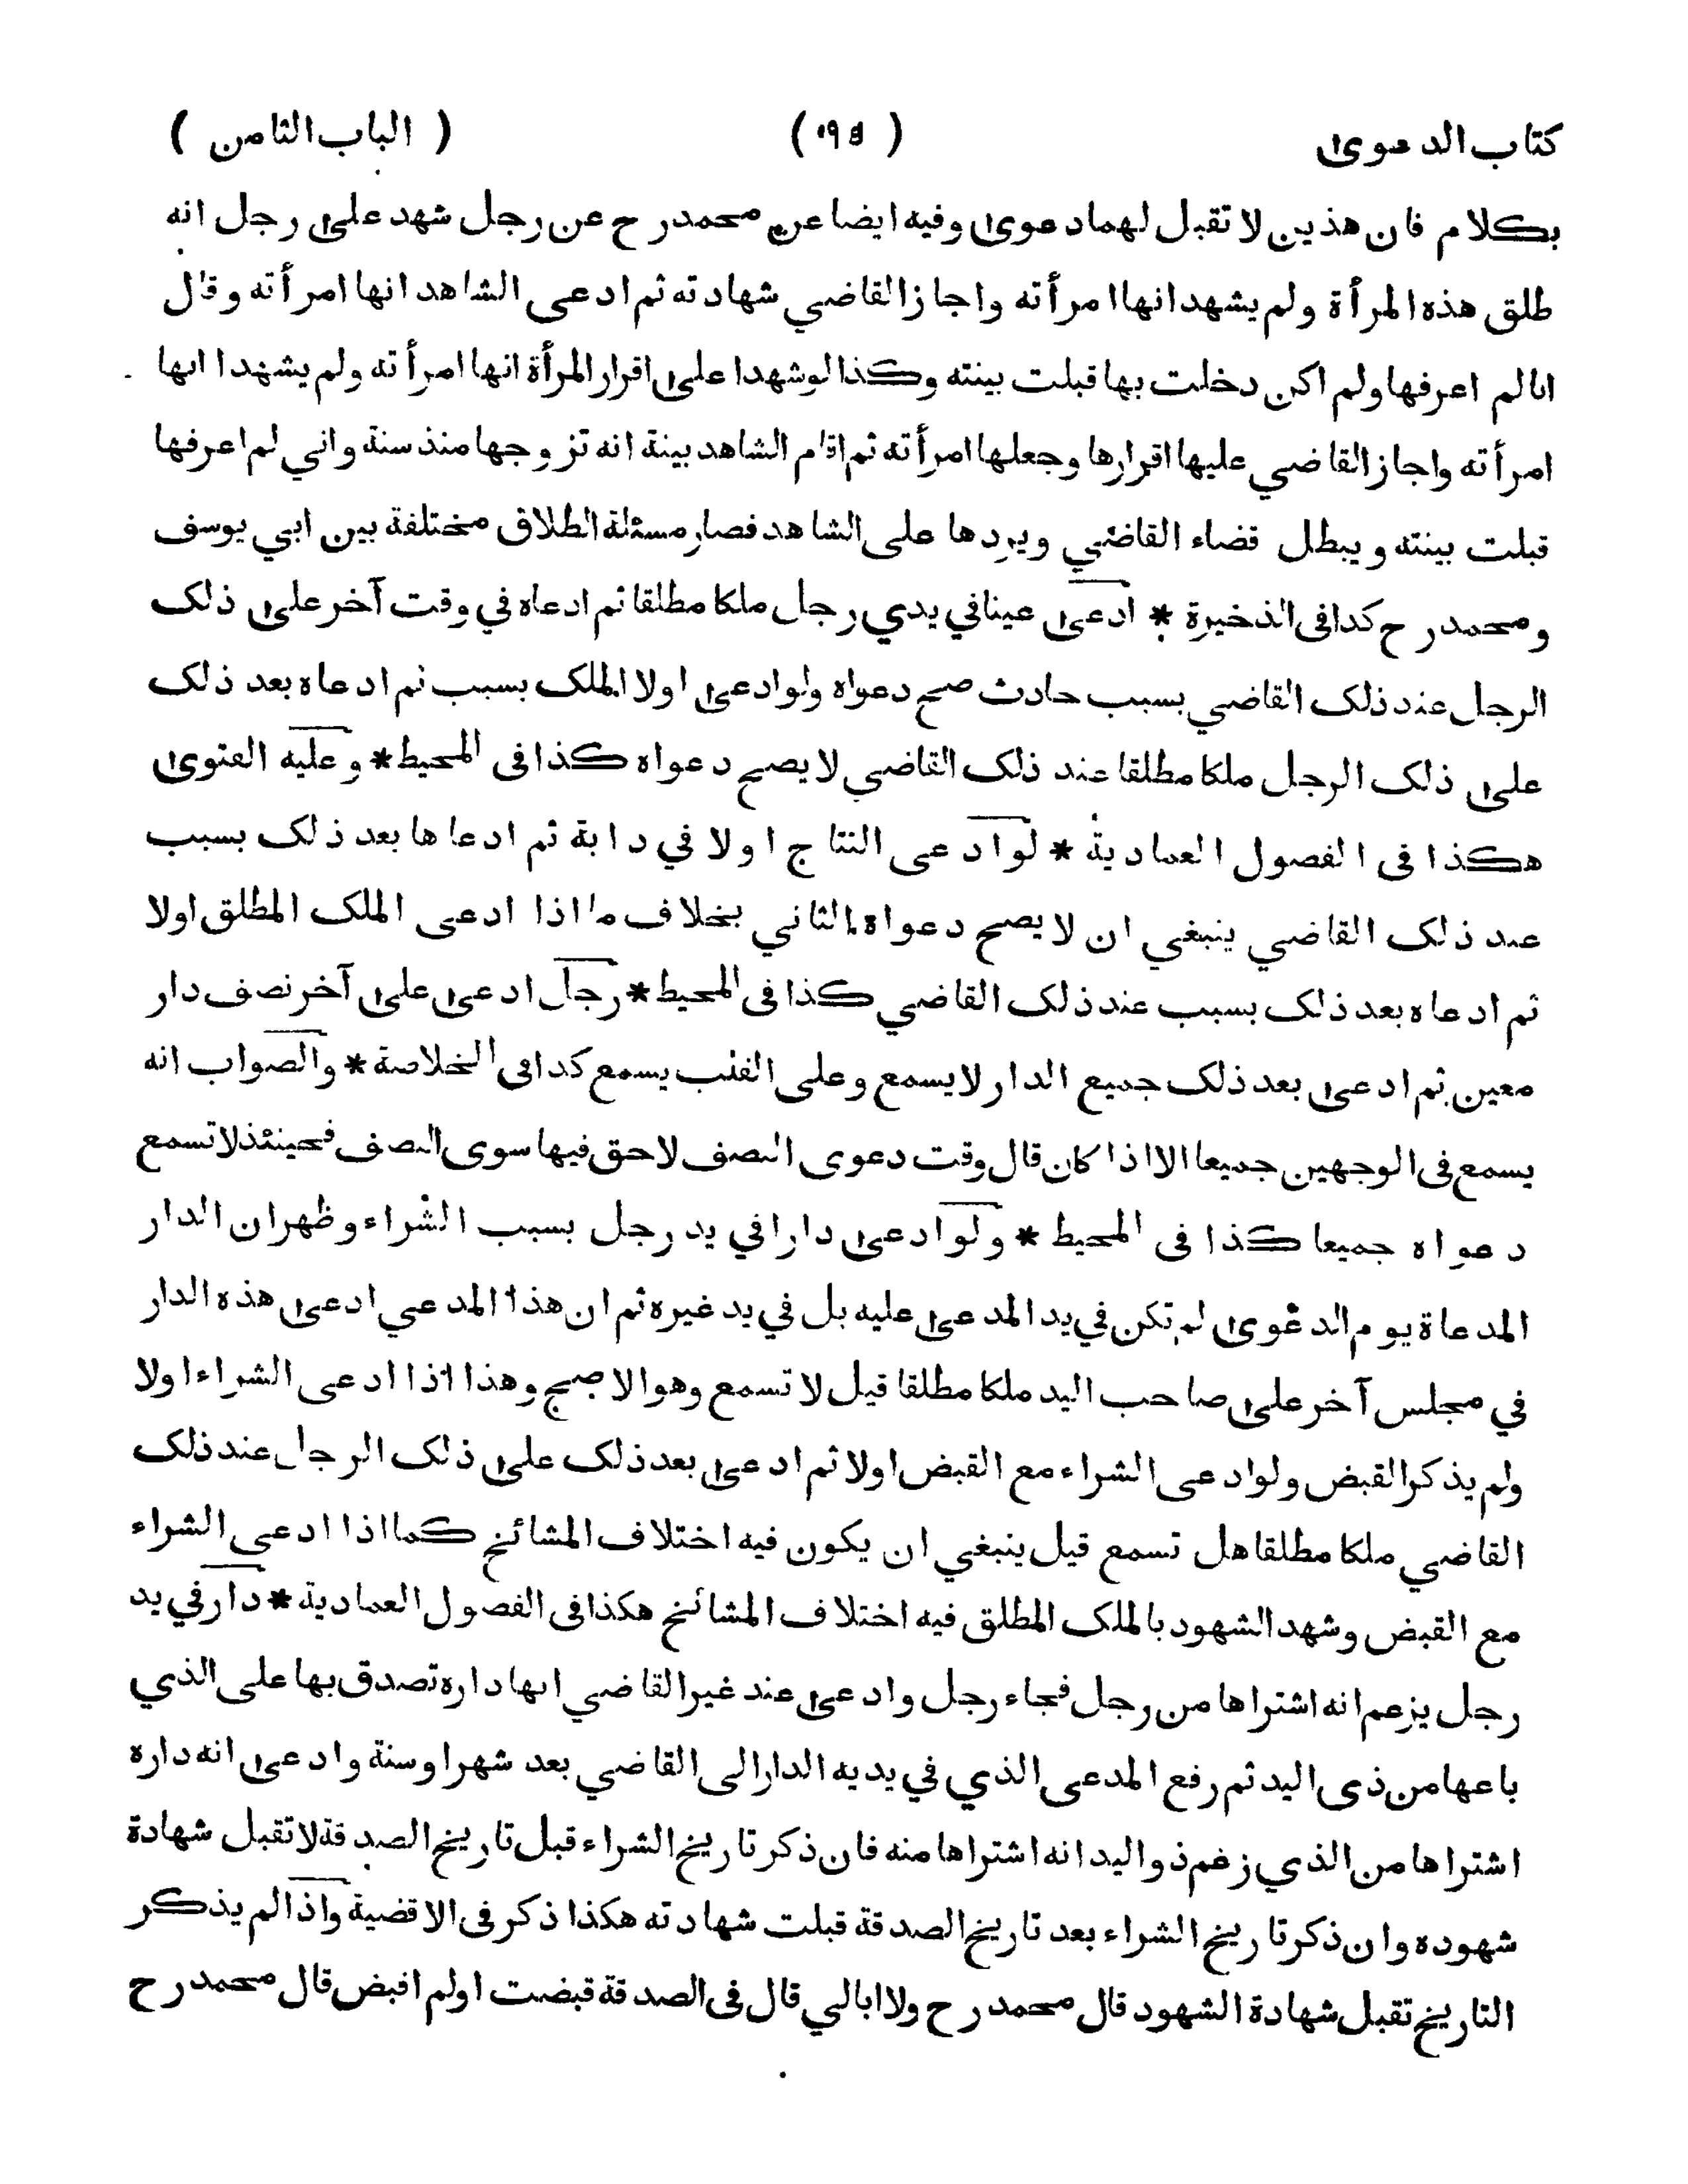 كتاب الدعوى ( ٩٥ ) ( الباب الثامن )
بكلام فان هذين لا تقبل لهما دعوى وفيه ايضا عن محمد رح عن رجل شهد على رجل انه
طلق هذه المرأة ولم يشهد انها امرأته واجاز القاضي شهادته ثم ادعى الشاهد انها امرأته وقال
انا لم اعرفها ولم اكن دخلت بها قبلت بينته وكذا لو شهدا على اقرار المرأة انها امرأته ولم يشهدا انها
امرأته واجاز القاضي عليها اقرارها وجعلها امرأته ثم اقام الشاهد بينة انه تزوجها منذ سنة واني لم اعرفها
قبلت بينته ويبطل قضاء القاضي ويردها على الشاهد فصار مسئلة الطلاق مختلفة بين ابي يوسف
ومحمد رح كذا فى الذخيرة * ادعى عينا في يدي رجل ملكا مطلقا ثم ادعاه في وقت آخر على ذلك
الرجل عند ذلك القاضي بسبب حادث صح دعواه ولو ادعى اولا الملك بسبب ثم ادعاه بعد ذلك
على ذلك الرجل ملكا مطلقا عند ذلك القاضي لا يصح دعواه كذا فى المحيط * وعليه الفتوى
هكذا فى الفصول العمادية * لو ادعى النتاج اولا في دابة ثم ادعاها بعد ذلك بسبب
عند ذلك القاضي ينبغي ان لا يصح دعواه الثاني بخلاف ما اذا ادعى الملك المطلق اولا
ثم ادعاه بعد ذلك بسبب عند ذلك القاضي كذا فى المحيط * رجل ادعى على آخر نصف دار
معين ثم ادعى بعد ذلك جميع الدار لا يسمع وعلى القلب يسمع كذا فى الخلاصة * والصواب انه
يسمع فى الوجهين جميعا الا اذا كان قال وقت دعوى النصف لا حق فيها سوى النصف فحينئذ لا تسمع
دعواه جميعا كذا فى المحيط * ولو ادعى دارا في يد رجل بسبب الشراء وظهر ان الدار
المدعاة يوم الدعوى لم تكن في يد المدعى عليه بل في يد غيره ثم ان هذا المدعي ادعى هذه الدار
في مجلس آخر على صاحب اليد ملكا مطلقا قيل لا تسمع وهو الاصح وهذا اذا ادعى الشراء اولا
ولم يذكر القبض ولو ادعى الشراء مع القبض اولا ثم ادعى بعد ذلك على ذلك الرجل عند ذلك
القاضي ملكا مطلقا هل تسمع قيل ينبغي ان يكون فيه اختلاف المشائخ كما اذا ادعى الشراء
مع القبض وشهد الشهود بالملك المطلق فيه اختلاف المشائخ هكذا فى الفصول العمادية * دار في يد
رجل يزعم انه اشتراها من رجل فجاء رجل وادعى عند غير القاضي انها داره تصدق بها على الذي
باعها من ذى اليد ثم رفع المدعى الذي في يديه الدار الى القاضي بعد شهر او سنة وادعى انه داره
اشتراها من الذي زعم ذو اليد انه اشتراها منه فان ذكر تاريخ الشراء قبل تاريخ الصدقة لا تقبل شهادة
شهوده وان ذكر تاريخ الشراء بعد تاريخ الصدقة قبلت شهادته هكذا ذكر فى الاقضية واذا لم يذكر
التاريخ تقبل شهادة الشهود قال محمد رح ولا ابالي قال فى الصدقة قبضت او لم اقبض قال محمد رح